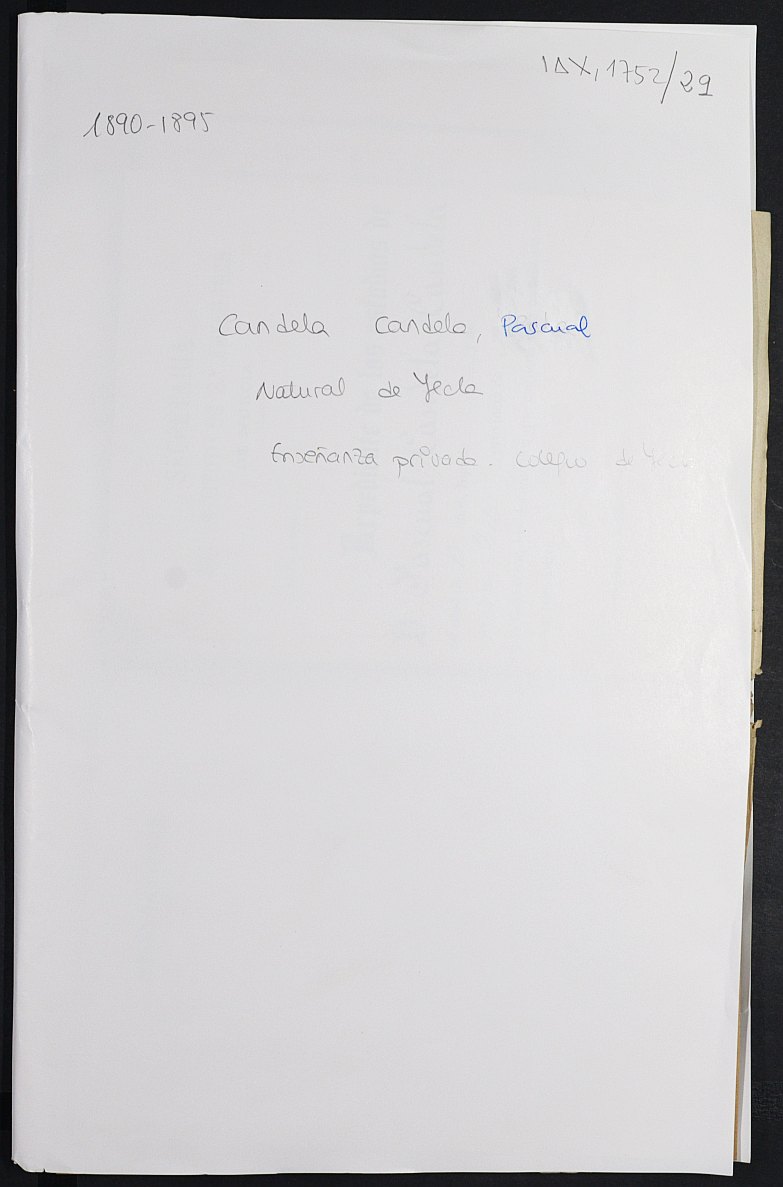 IAX, 1752/29
1890-1895
Candela Candela, Pascual
Natural de Yecla
Enseñanza privada. Colegio de Yecla